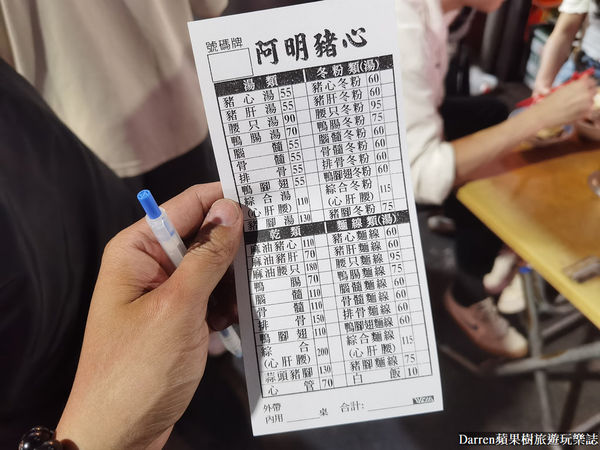 號碼牌
阿明豬心
湯類
豬心湯 55
豬肝湯 55
腰只湯 90
鴨腸湯 70
腦髓 55
骨髓 55
排骨 55
鴨腳翅 55
綜合湯
(心肝腰) 110
豬腳湯 130
乾類
麻油豬心 110
麻油豬肝 110
麻油腰只 180
鴨腸 70
腦髓 110
骨髓 110
排骨 150
鴨腳翅 110
綜合
(心肝腰) 200
蒜頭豬腳 130
心管 70
冬粉類(湯)
豬心冬粉 60
豬肝冬粉 60
腰只冬粉 95
鴨腸冬粉 75
腦髓冬粉 60
骨髓冬粉 60
排骨冬粉 60
鴨腳翅冬粉 60
綜合冬粉
(心肝腰) 115
豬腳冬粉 75
麵線類(湯)
豬心麵線 60
豬肝麵線 60
腰只麵線 95
鴨腸麵線 75
腦髓麵線 60
骨髓麵線 60
排骨麵線 60
鴨腳翅麵線 60
綜合麵線
(心肝腰) 115
豬腳麵線 75
白飯 10
外帶
內用 桌 合計:
Darren蘋果樹旅遊玩樂誌